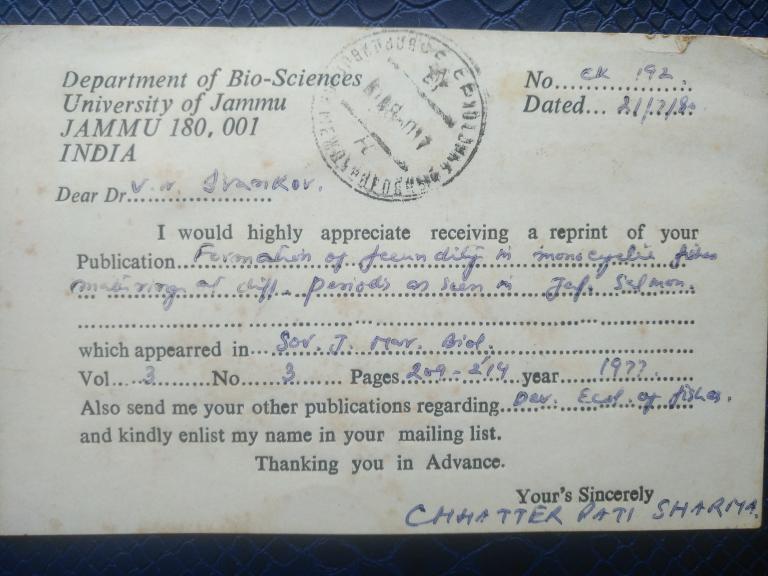 Department of Bio-Sciences
University of Jammu
JAMMU 180, 001
INDIA
No... CK 192.
Dated... 21/7/80
Dear Dr. V.N. Ivankov.
I would highly appreciate receiving a reprint of your
Publication... Formation of fecundity in monocyclic fishes
maturing at diff. periods as seen in Jap. Salmon.
which appearred in... Sov. J. Mar. Biol.
Vol... 3 ...No... 3 ... Pages 209-214 year... 1977.
Also send me your other publications regarding... Dev. Ecol. of fishes.
and kindly enlist my name in your mailing list.
Thanking you in Advance.
Your's Sincerely
CHHATTER PATI SHARMA.